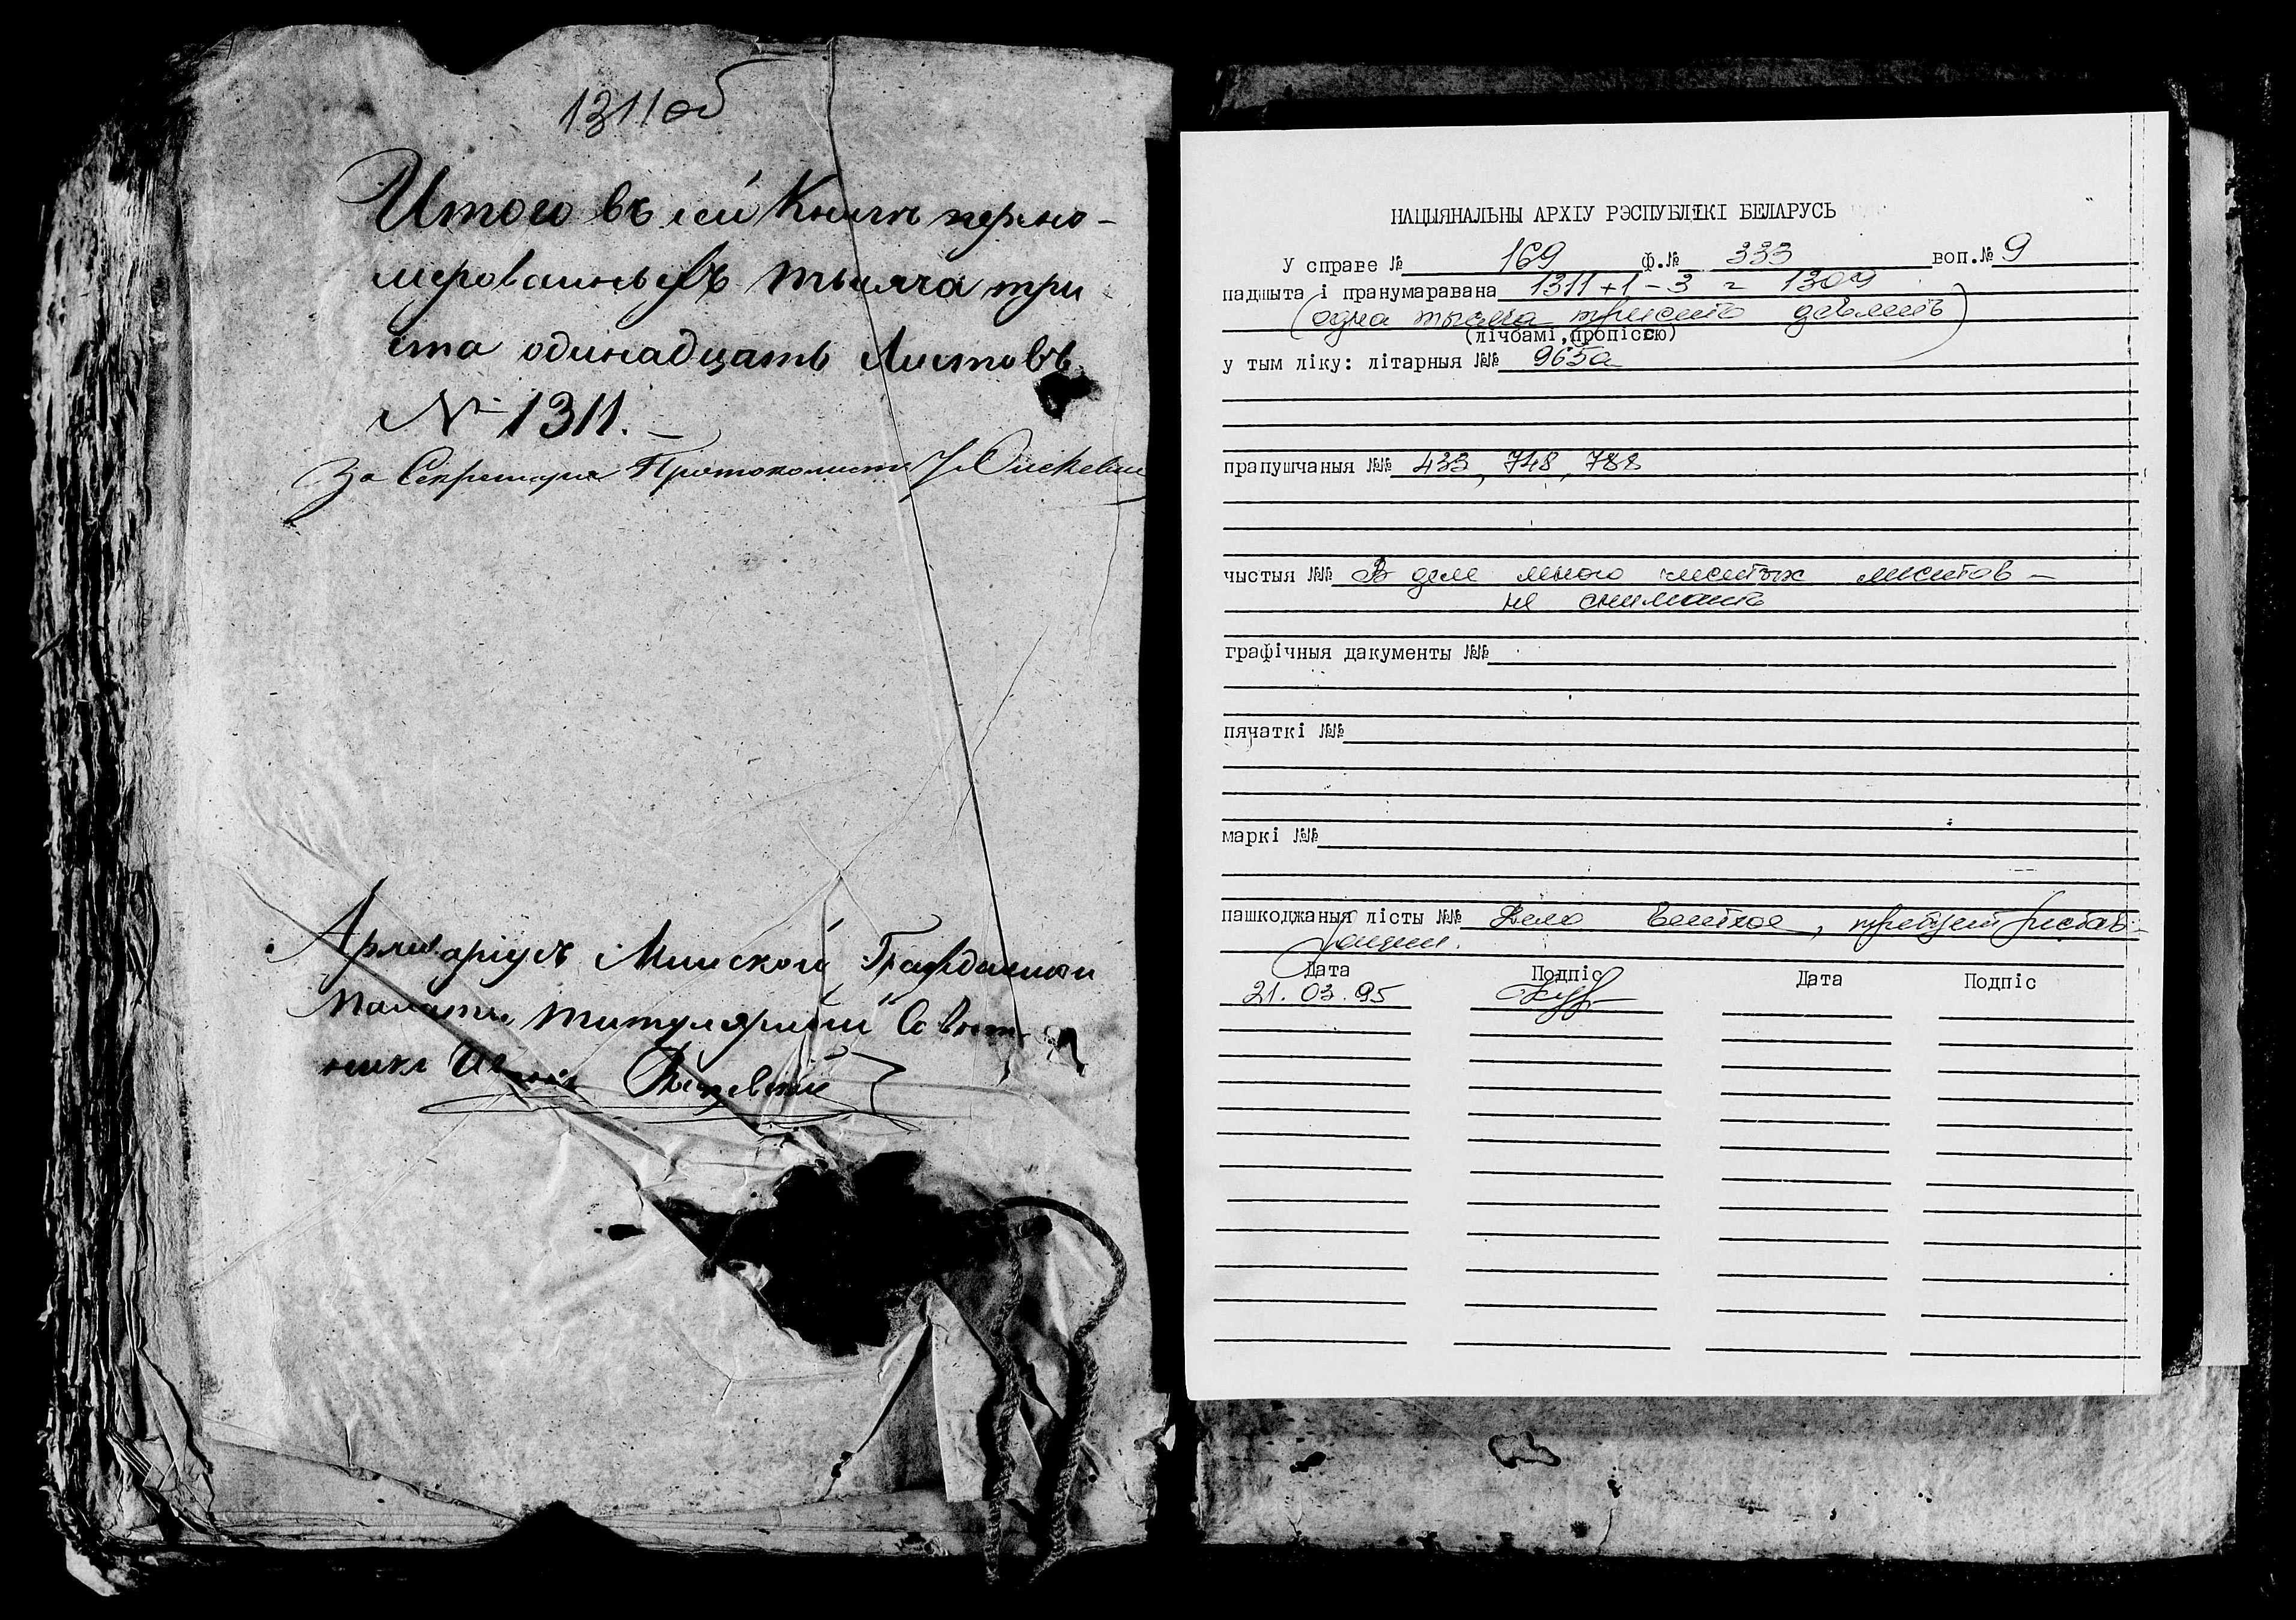 1311об
Итого въ сей Книги перено-
мерованныхъ тысяча три
ста одинадцать Листовъ
№ 1311.
За Секретаря Протоколистъ
Архиваріусъ Минской Гражданской
Палаты, титулярный Совѣт-
никъ
НАЦЫЯНАЛЬНЫ АРХІУ РЭСПУБЛІКІ БЕЛАРУСЬ
У справе № 169 ф.№ 333 воп.№ 9
падшыта і пранумаравана 1311+1-3 = 1309
(одна тысяча триста девять)
(лічбамі, пропіссю)
у тым ліку: літарныя №№ 965а
прапушчаныя №№ 433, 748, 788
чыстыя №№ В деле много чистых листов -
не снимать
графічныя дакументы №№
пячаткі №№
маркі №№
пашкоджаныя лісты №№ Дело ветхое, требует рестав-
рации.
Дата Подпіс Дата Подпіс
21.03.95